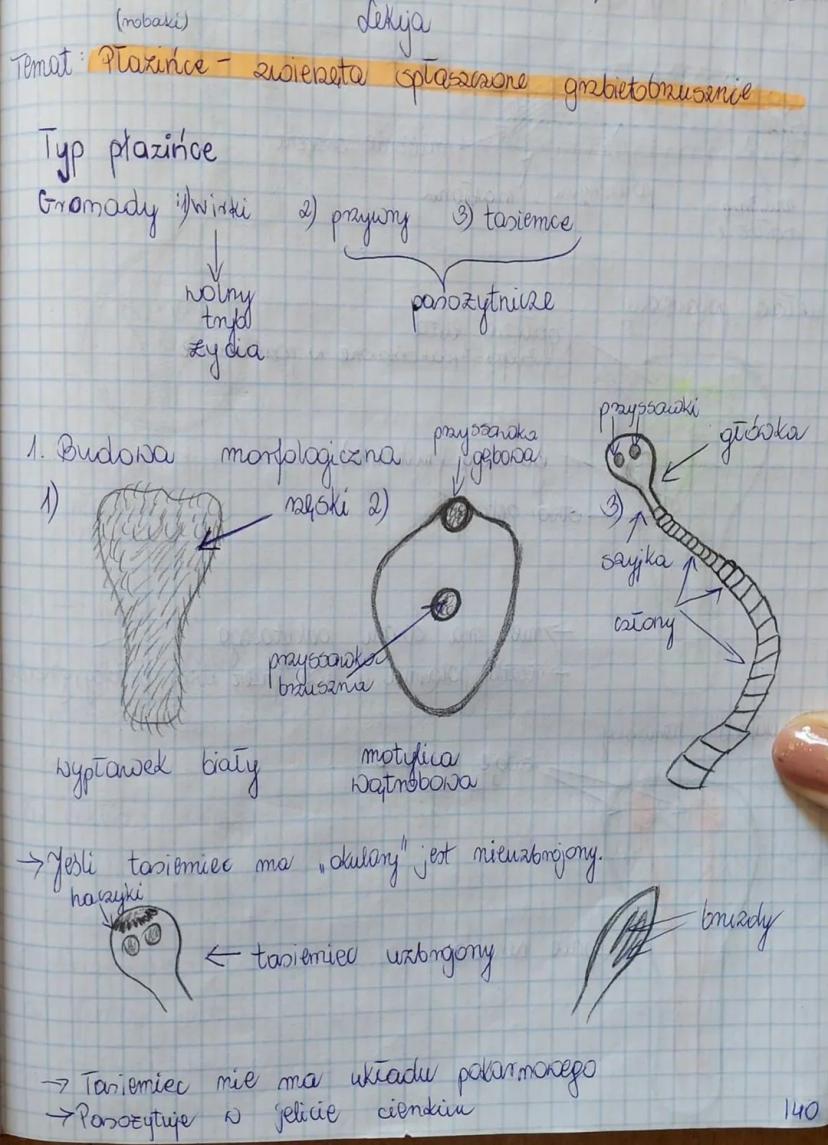 (robaki) Lekcja
Temat: Płazińce - zwierzęta spłaszczone grzbietobrzusznie
Typ płazińce
Gromady 1) wirki 2) przywry 3) tasiemce
wolny
tryb
życia
pasożytnicze
1. Budowa morfologiczna
1)
rzęski
2)
przyssawka
gębowa
przyssawka
brzuszna
3)
przyssawki
główka
szyjka
człony
wypławek biały
motylica
wątrobowa
→ Jeśli tasiemiec ma „okulary" jest nieuzbrojony.
haczyki
← tasiemiec uzbrojony
bruzdy
→ Tasiemiec nie ma układu pokarmowego
→ Pasożytuje w jelicie cienkim
140